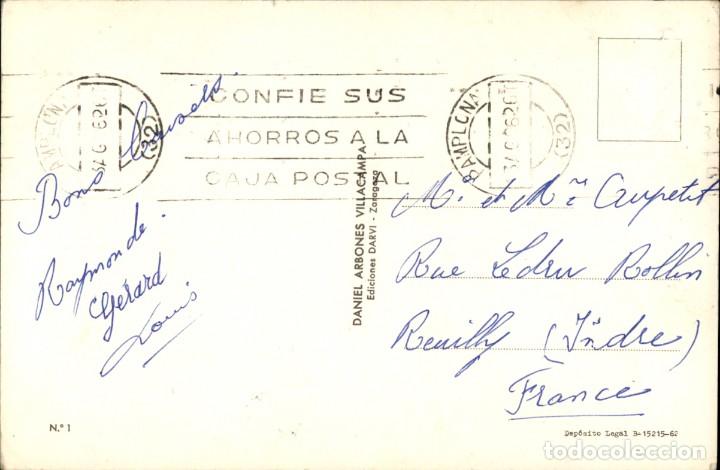 PAMPLONA
(32)
CONFIE SUS
AHORROS A LA
CAJA POSTAL
PAMPLONA
(32)
Bons baisers.
Raymonde.
Gérard
Louis
DANIEL ARBONES VILLACAMPA
Ediciones DARVI - Zaragoza
M. et Me Aupetit
Rue Ledru Rollin
Reuilly (Indre)
France
N.º 1
Depósito Legal B-15215-62
todocoleccion